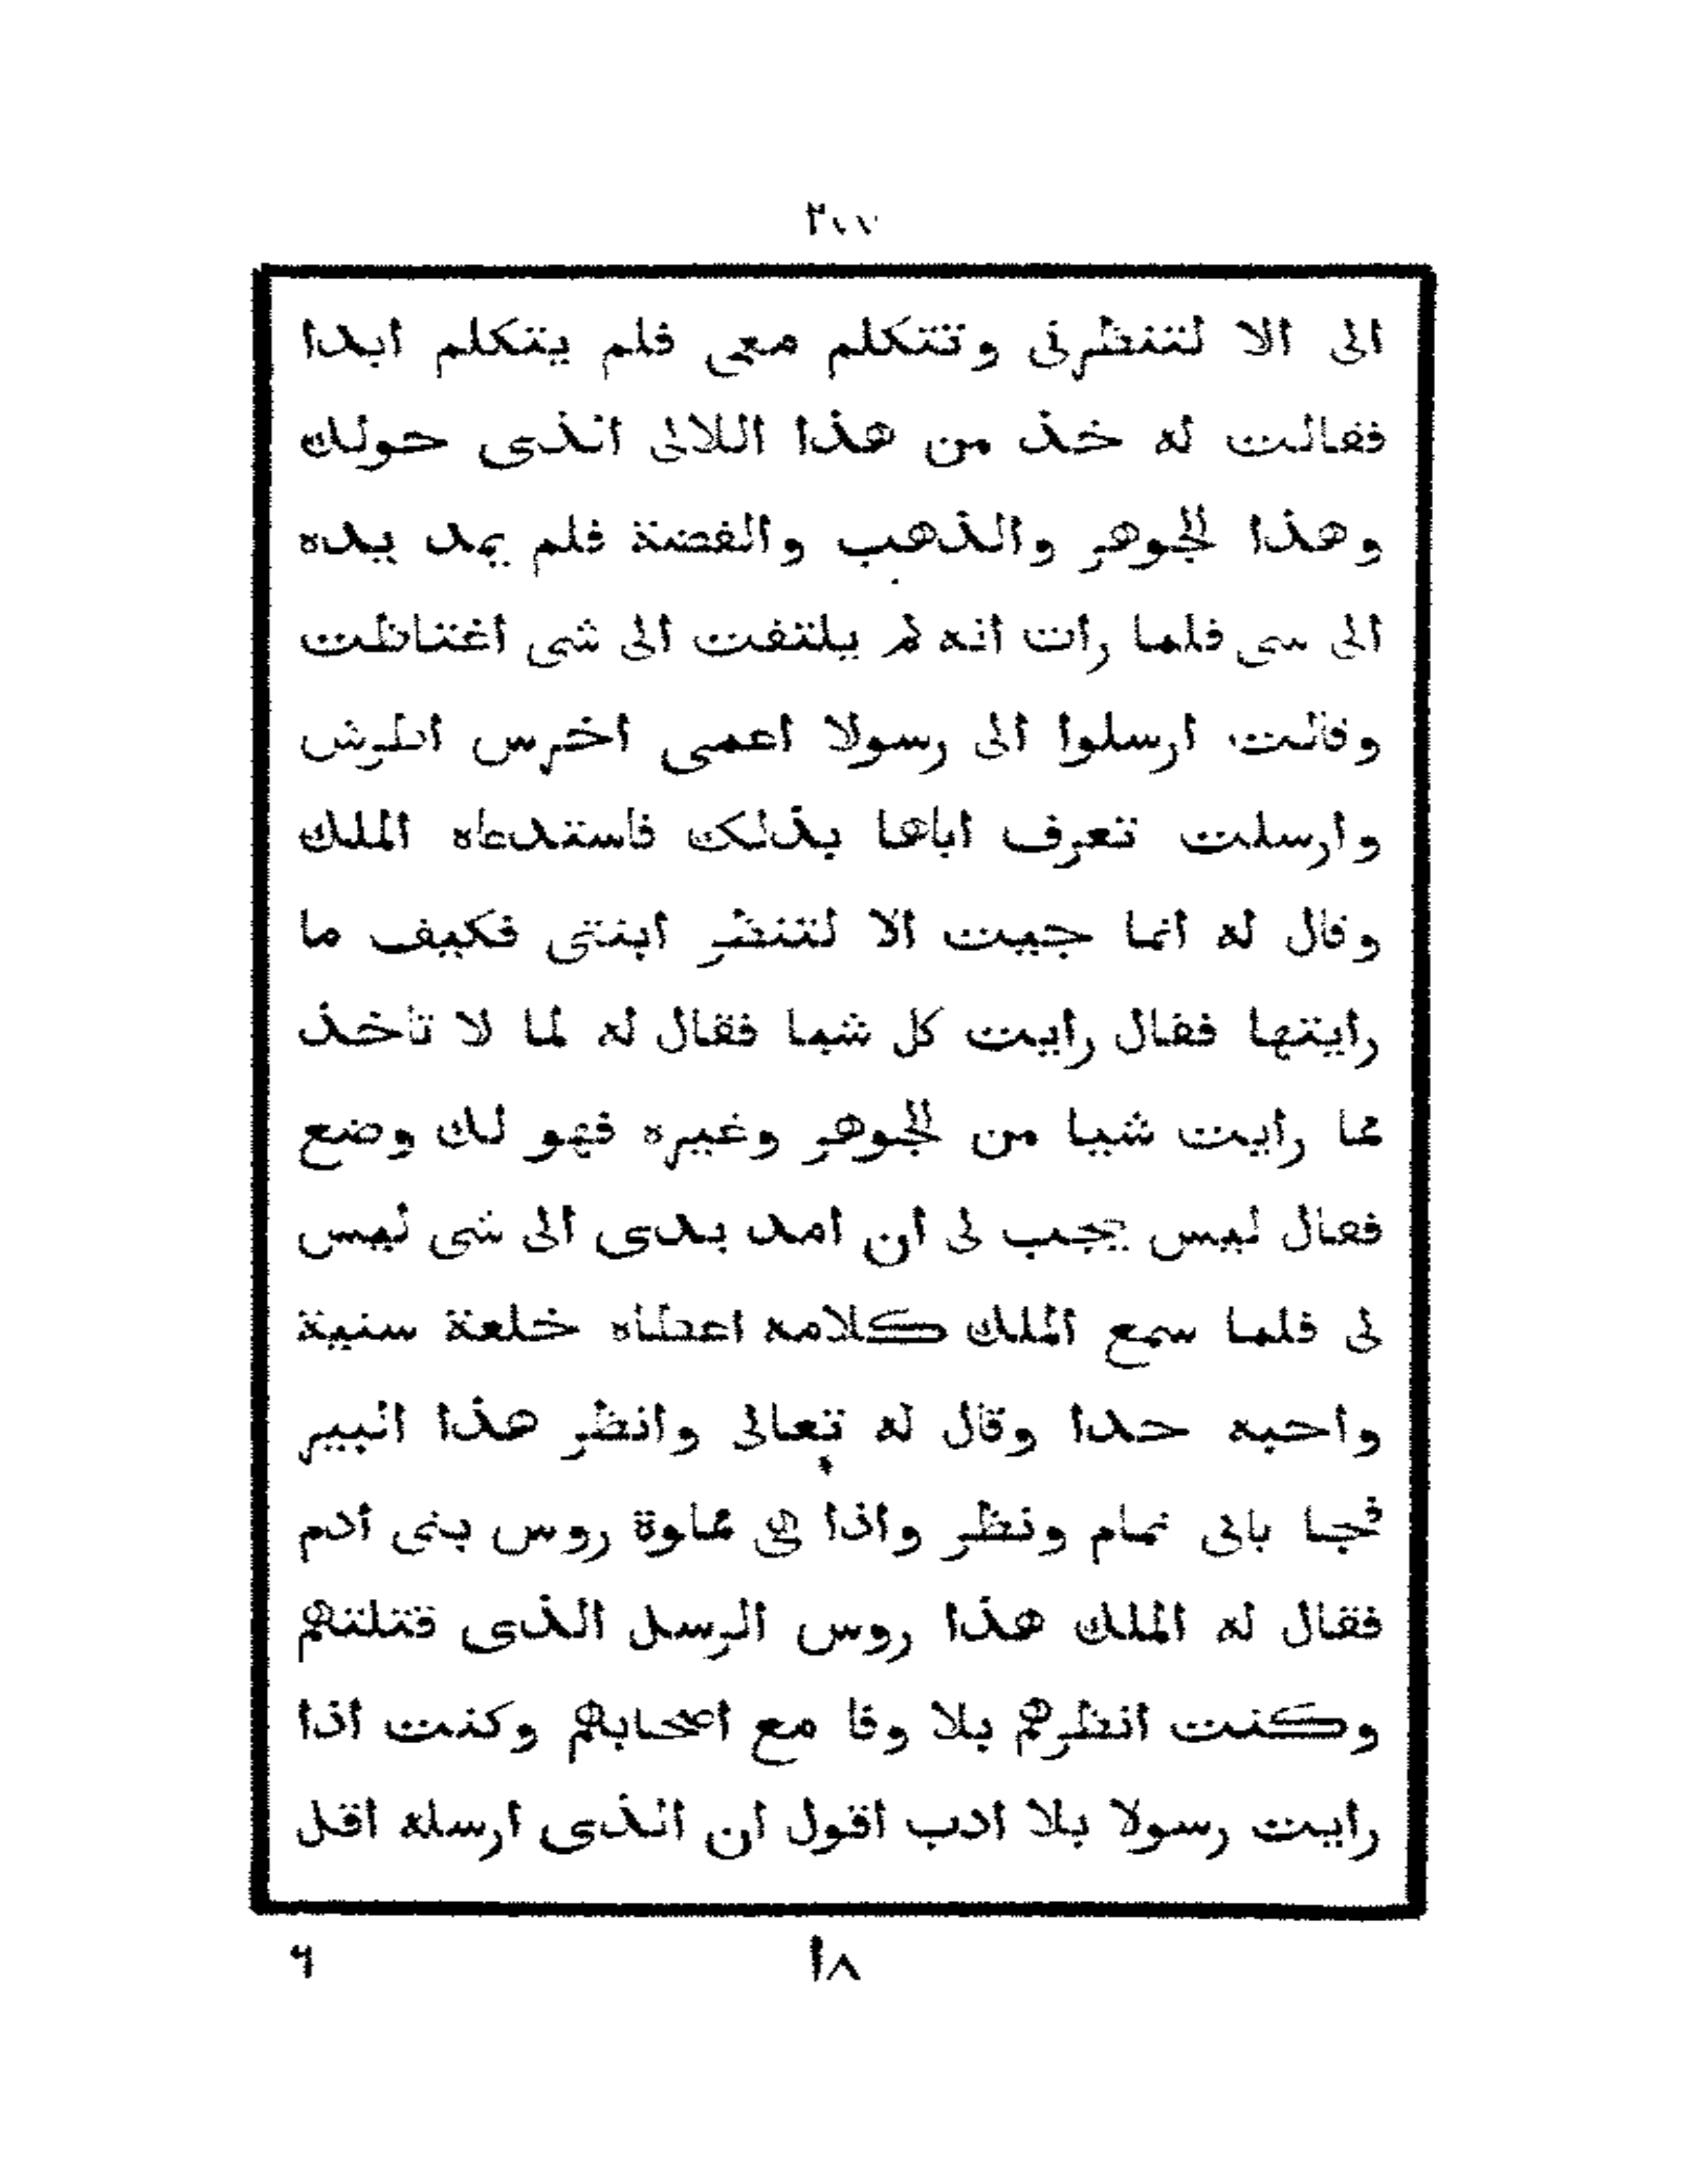 ٢٠٧
الى الا لتنظرنى وتتكلم معى فلم يتكلم ابدا
فقالت له خذ من هذا اللالى الذى حولك
وهذا الجوهر والذهب والفضة فلم يمد يده
الى سى فلما رات انه لم يلتفت الى شى اغتاظت
وقالت ارسلوا الى رسولا اعمى اخرس اطرش
وارسلت تعرف اباها بذلك فاستدعاه الملك
وقال له انما جييت الا لتنظر ابنتى فكيف ما
رايتها فقال رايت كل شيا فقال له لما لا تاخذ
مما رايت شيا من الجوهر وغيره فهو لك وضع
فقال ليس يجب لى ان امد يدى الى شى ليس
لى فلما سمع الملك كلامه اعطاه خلعة سنية
واحبه جدا وقال له تعالى وانظر هذا البير
فجا بانى تمام ونظر واذا هى مملوة روس بنى ادم
فقال له الملك هذا روس الرسل الذى قتلتهم
وكنت انظرهم بلا وفا مع اصحابهم وكنت اذا
رايت رسولا بلا ادب اقول ان الذى ارسله اقل
١٨
٦